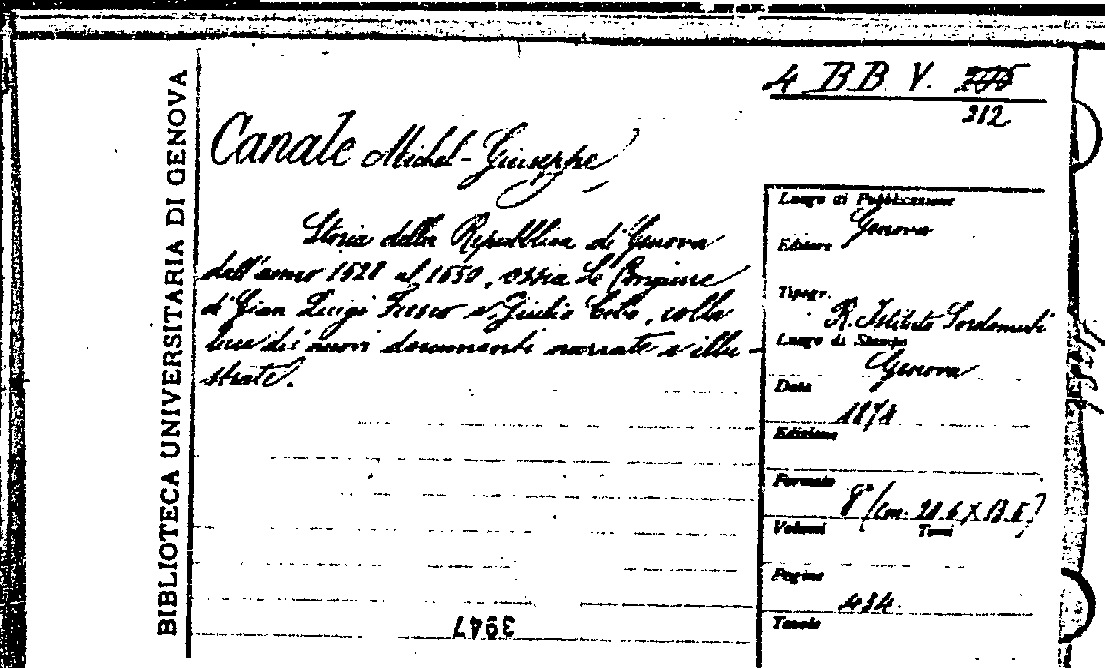 BIBLIOTECA UNIVERSITARIA DI GENOVA
4 B.B. V.
212
Canale Michel-Giuseppe
Storia della Repubblica di Genova
dall'anno 1528 al 1550, ossia Le Congiure
di Gian Luigi Fiesco e Giulio Cibo, colla
luce dei nuovi documenti narrate e illu-
strate.
3947
Luogo di Pubblicazione
Genova
Editore
Tipogr.
R. Istituto Sordomuti
Luogo di Stampa
Genova
Data
1874
Edizione
Formato
8° (cm. 20.6 X 13.5)
Volumi Tomi
Pagine
434
Tavole